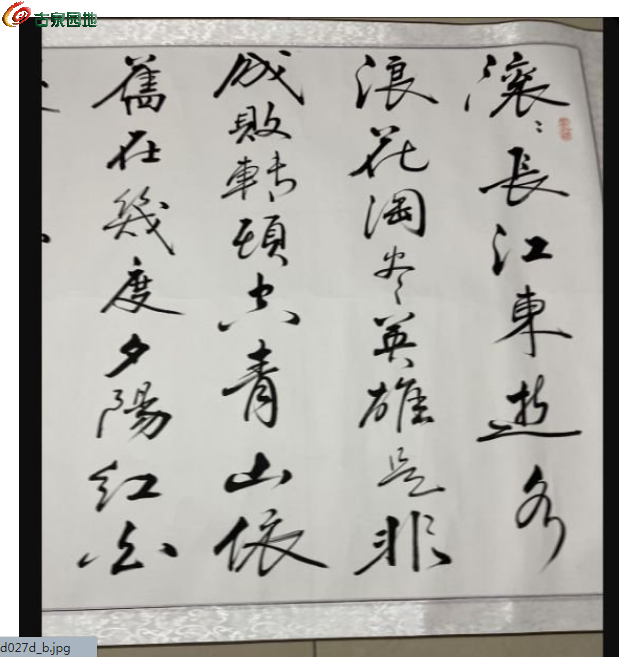 古泉园地
滚々長江東逝水
浪花淘尽英雄是非
成敗轉頭空青山依
舊在幾度夕陽紅白
d027d_b.jpg